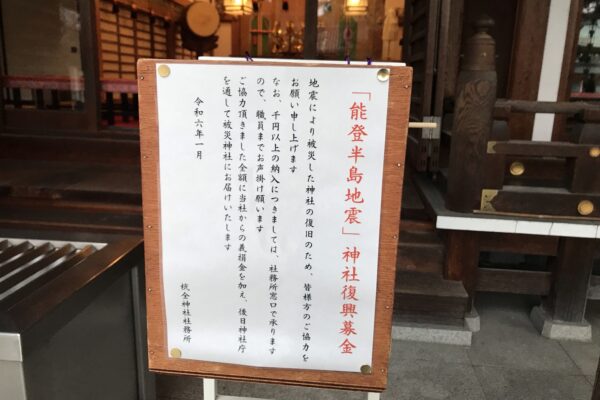 「能登半島地震」神社復興募金
地震により被災した神社の復旧のため、皆様方のご協力を
お願い申し上げます
なお、千円以上の納入につきましては、社務所窓口で承ります
ので、職員までお声掛け願います
ご協力頂きました金額に当社からの義捐金を加え、後日神社庁
を通して被災神社にお届けいたします
令和六年一月
杭全神社社務所